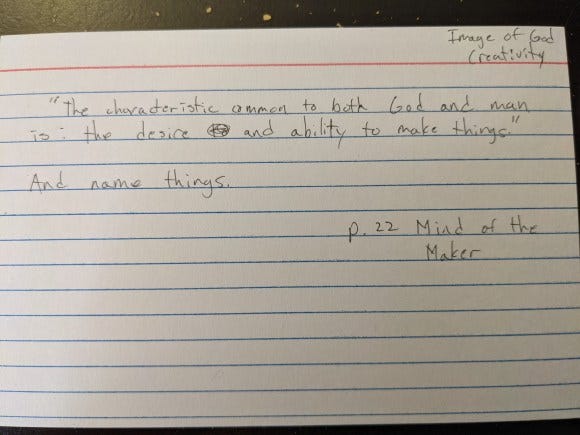 Image of God
Creativity
"The characteristic common to both God and man
is: the desire and ability to make things."
And name things.
p. 22 Mind of the
Maker